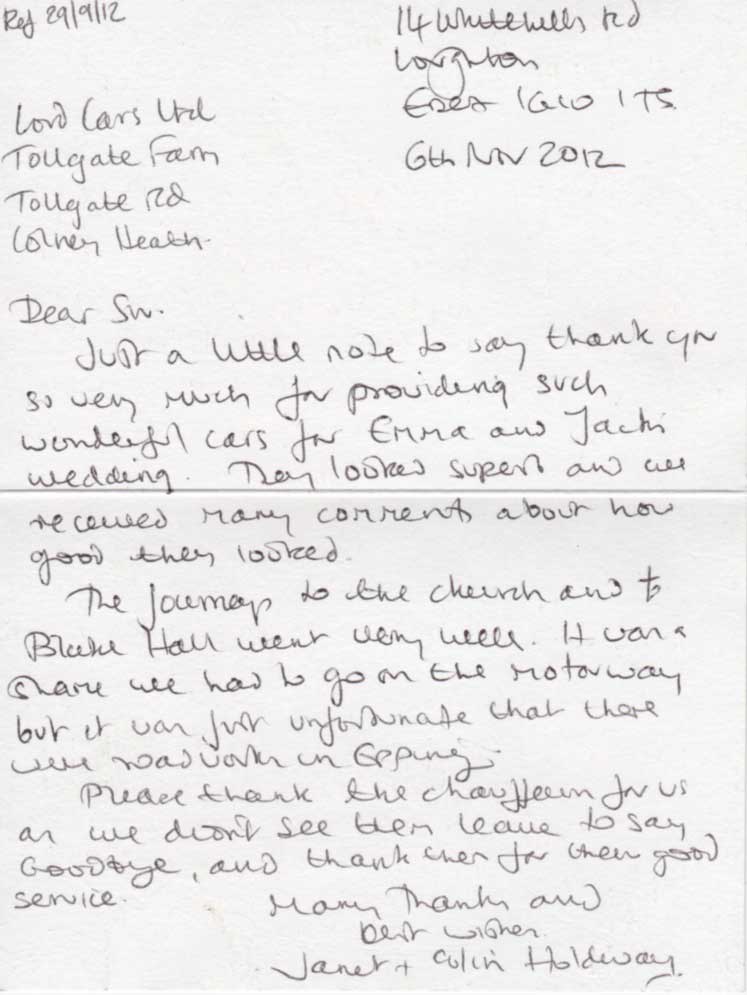 Ref 29/9/12
14 Whitehills Rd
Loughton
Essex IG10 1TS
6th Nov 2012
Lord Cars Ltd
Tollgate Farm
Tollgate Rd
Colney Heath.
Dear Sir.
Just a little note to say thank you
so very much for providing such
wonderful cars for Emma and Jack's
wedding. They looked superb and we
received many comments about how
good they looked.
The journey to the church and to
Blake Hall went very well. It was a
shame we had to go on the motorway
but it was just unfortunate that there
were roadworks in Epping.
Please thank the chauffeurs for us
as we didn't see them leave to say
Goodbye, and thank them for their good
service.
Many Thanks and
best wishes.
Janet + Colin Holdway